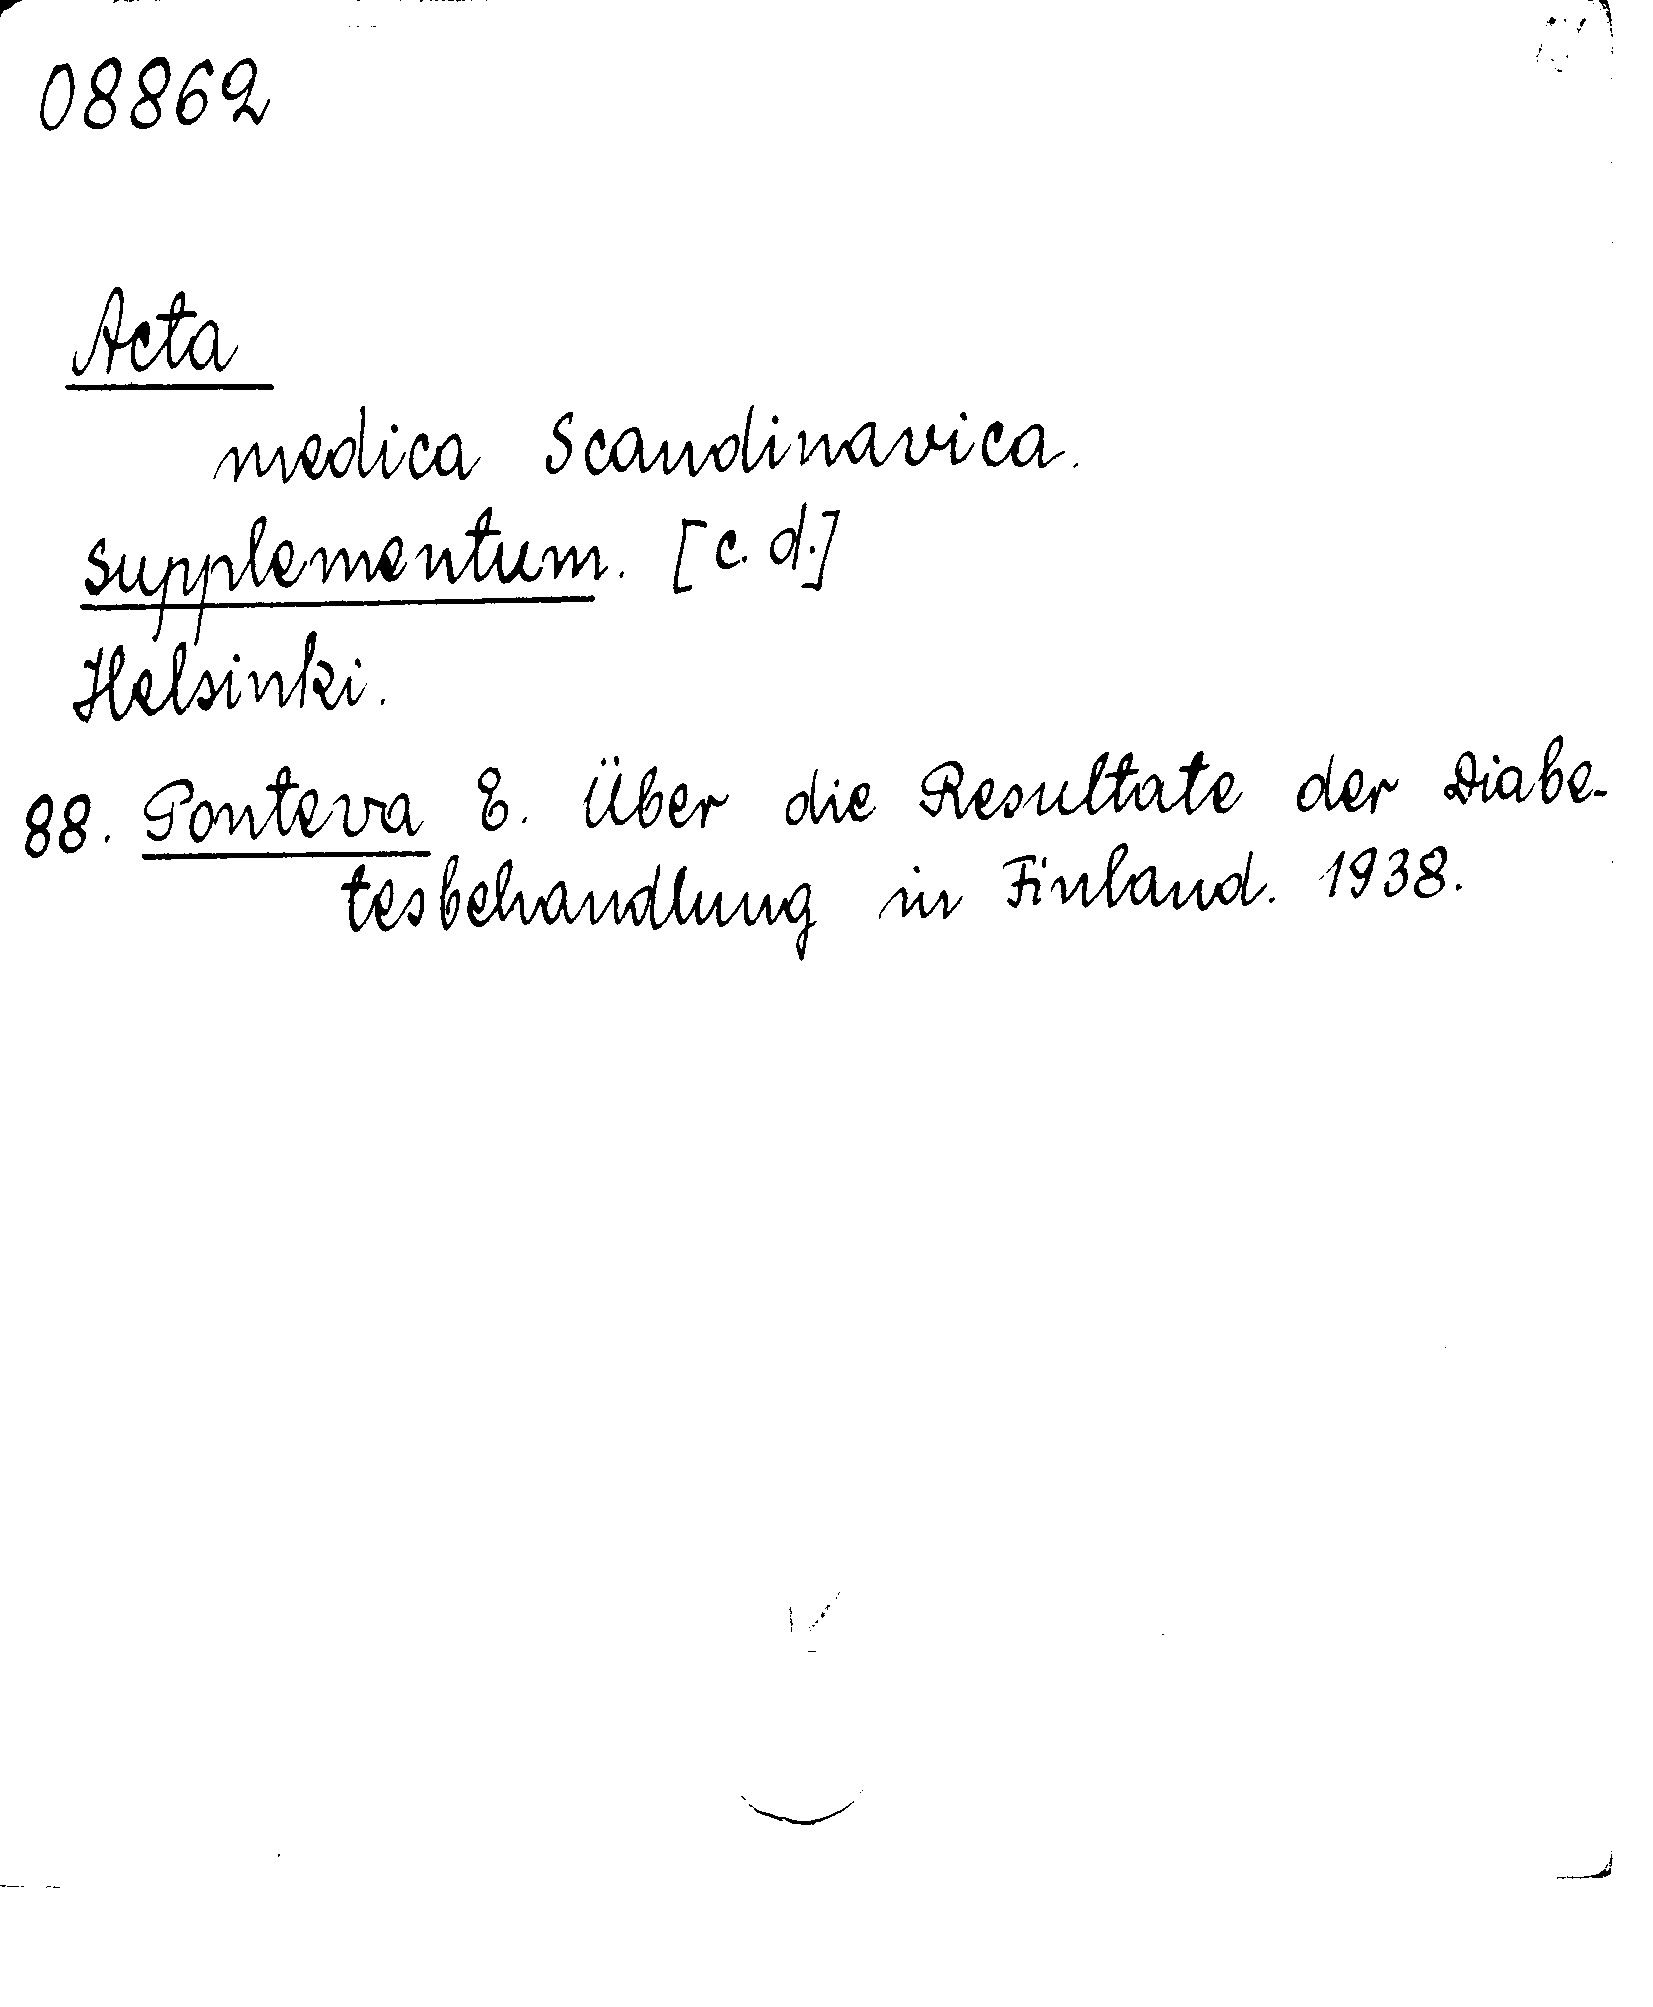 08862
Acta
medica Scandinavica.
Supplementum. [c.d.]
Helsinki.
88. Ponteva E. Über die Resultate der Diabe-
tesbehandlung in Finland. 1938.